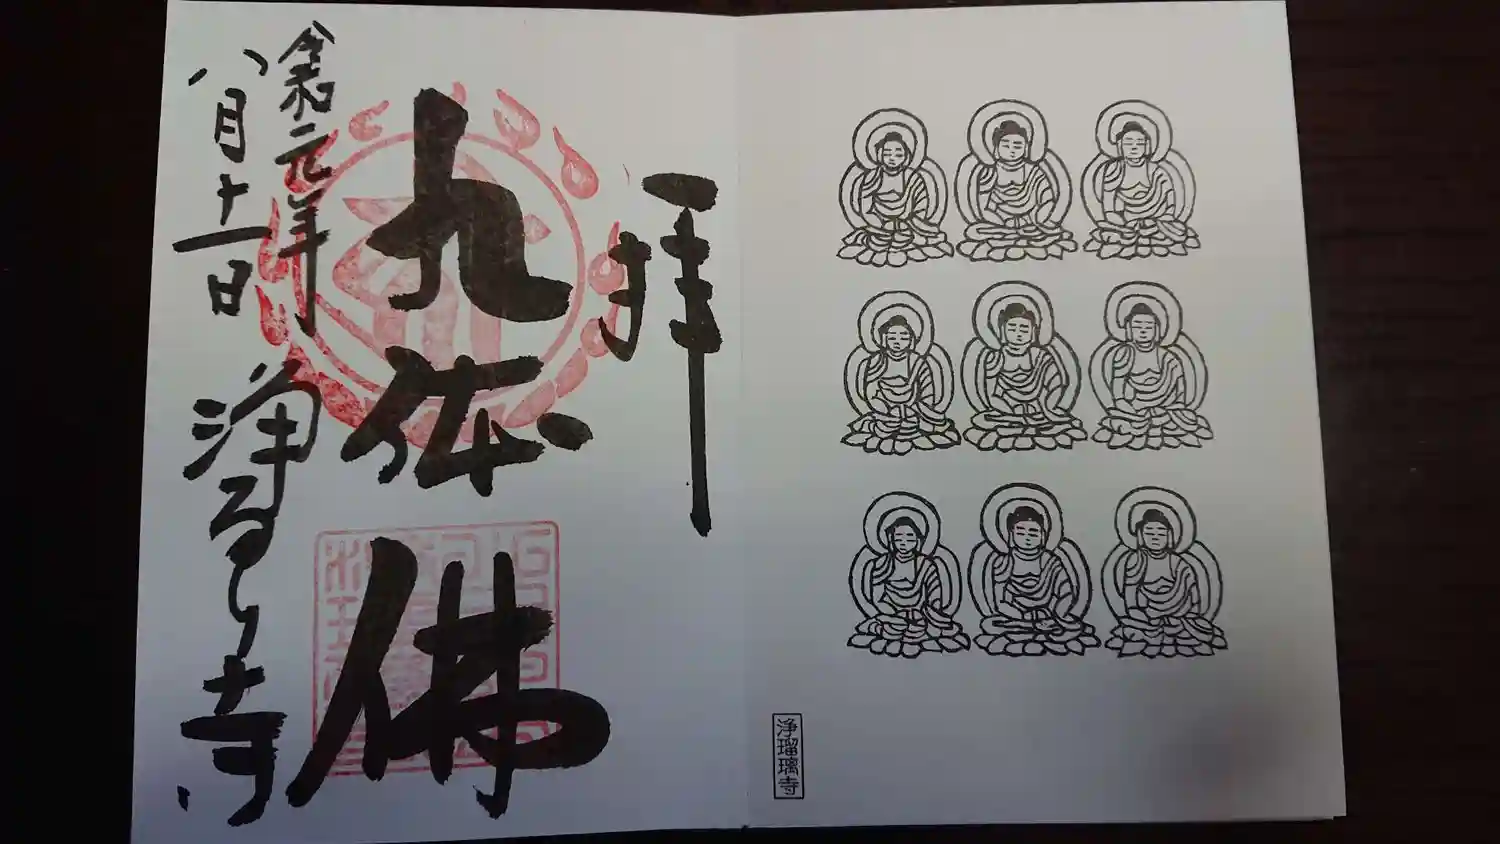 浄瑠璃寺
拝
九体佛
令和元年
八月十一日
浄るり寺